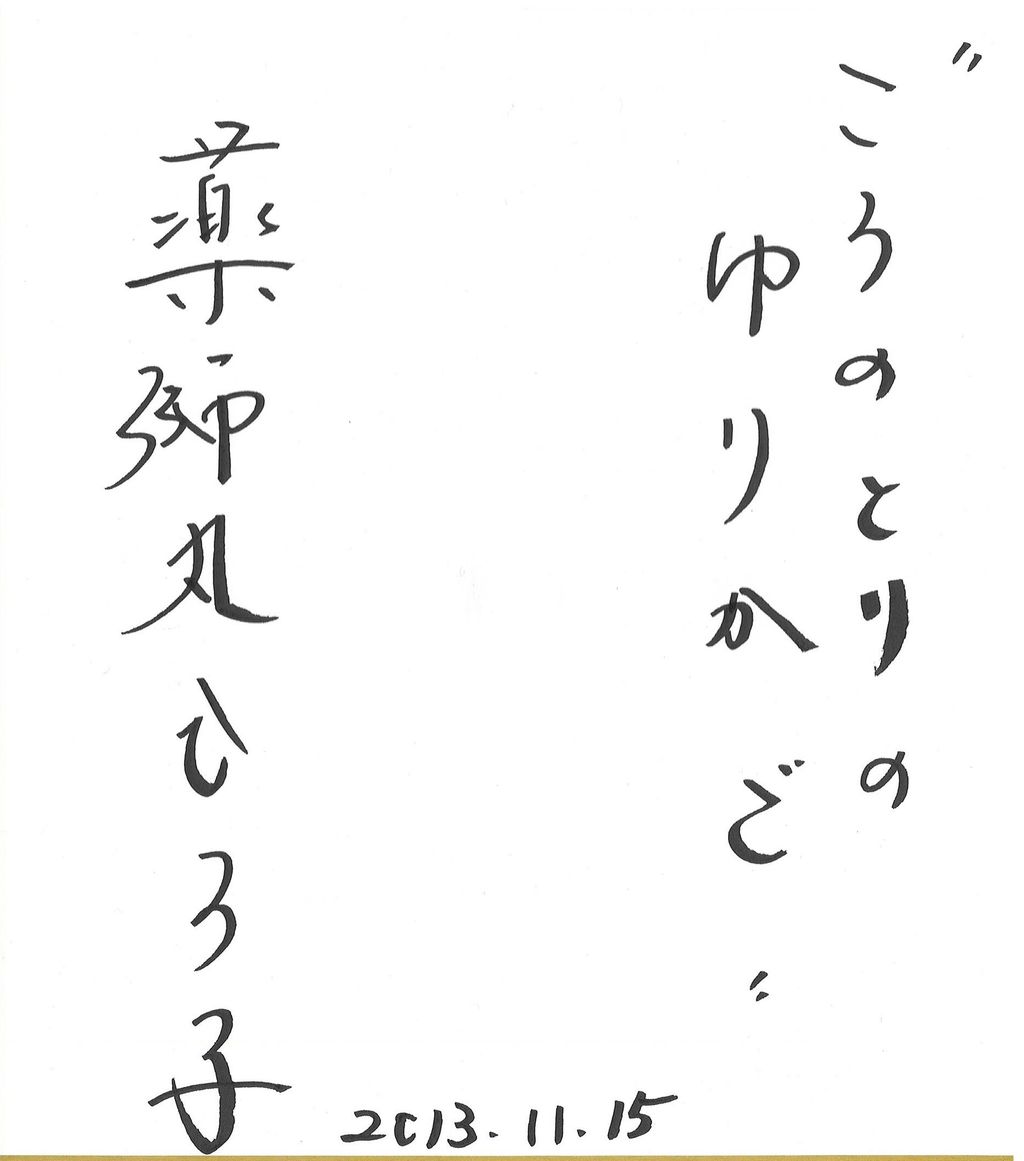 "こうのとりの
ゆりかご"
薬師丸ひろ子
2013.11.15